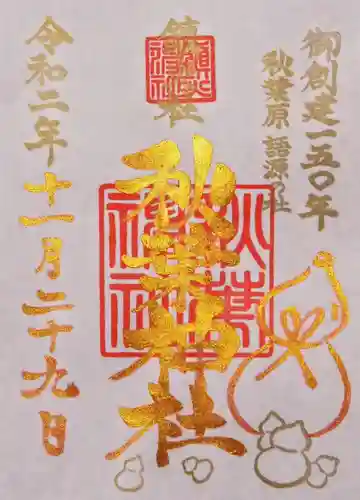 御創建一五〇年
秋葉原語源の社
鎮火社
秋葉神社
令和二年十一月二十九日